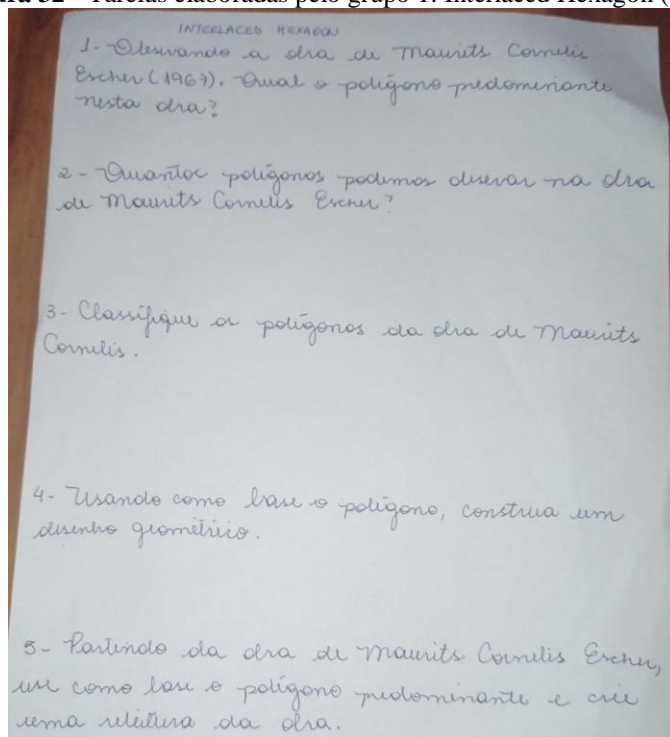 Tarefas elaboradas pelo grupo 1: Interlaced Hexagon (
INTERLACED HEXAGON
1- Observando a obra de Maurits Cornelis
Escher (1967). Qual o polígono predominante
nesta obra?
2- Quantos polígonos podemos observar na obra
de Maurits Cornelis Escher?
3- Classifique os polígonos da obra de Maurits
Cornelis.
4- Usando como base o polígono, construa um
desenho geométrico.
5- Partindo da obra de Maurits Cornelis Escher,
use como base o polígono predominante e crie
uma releitura da obra.